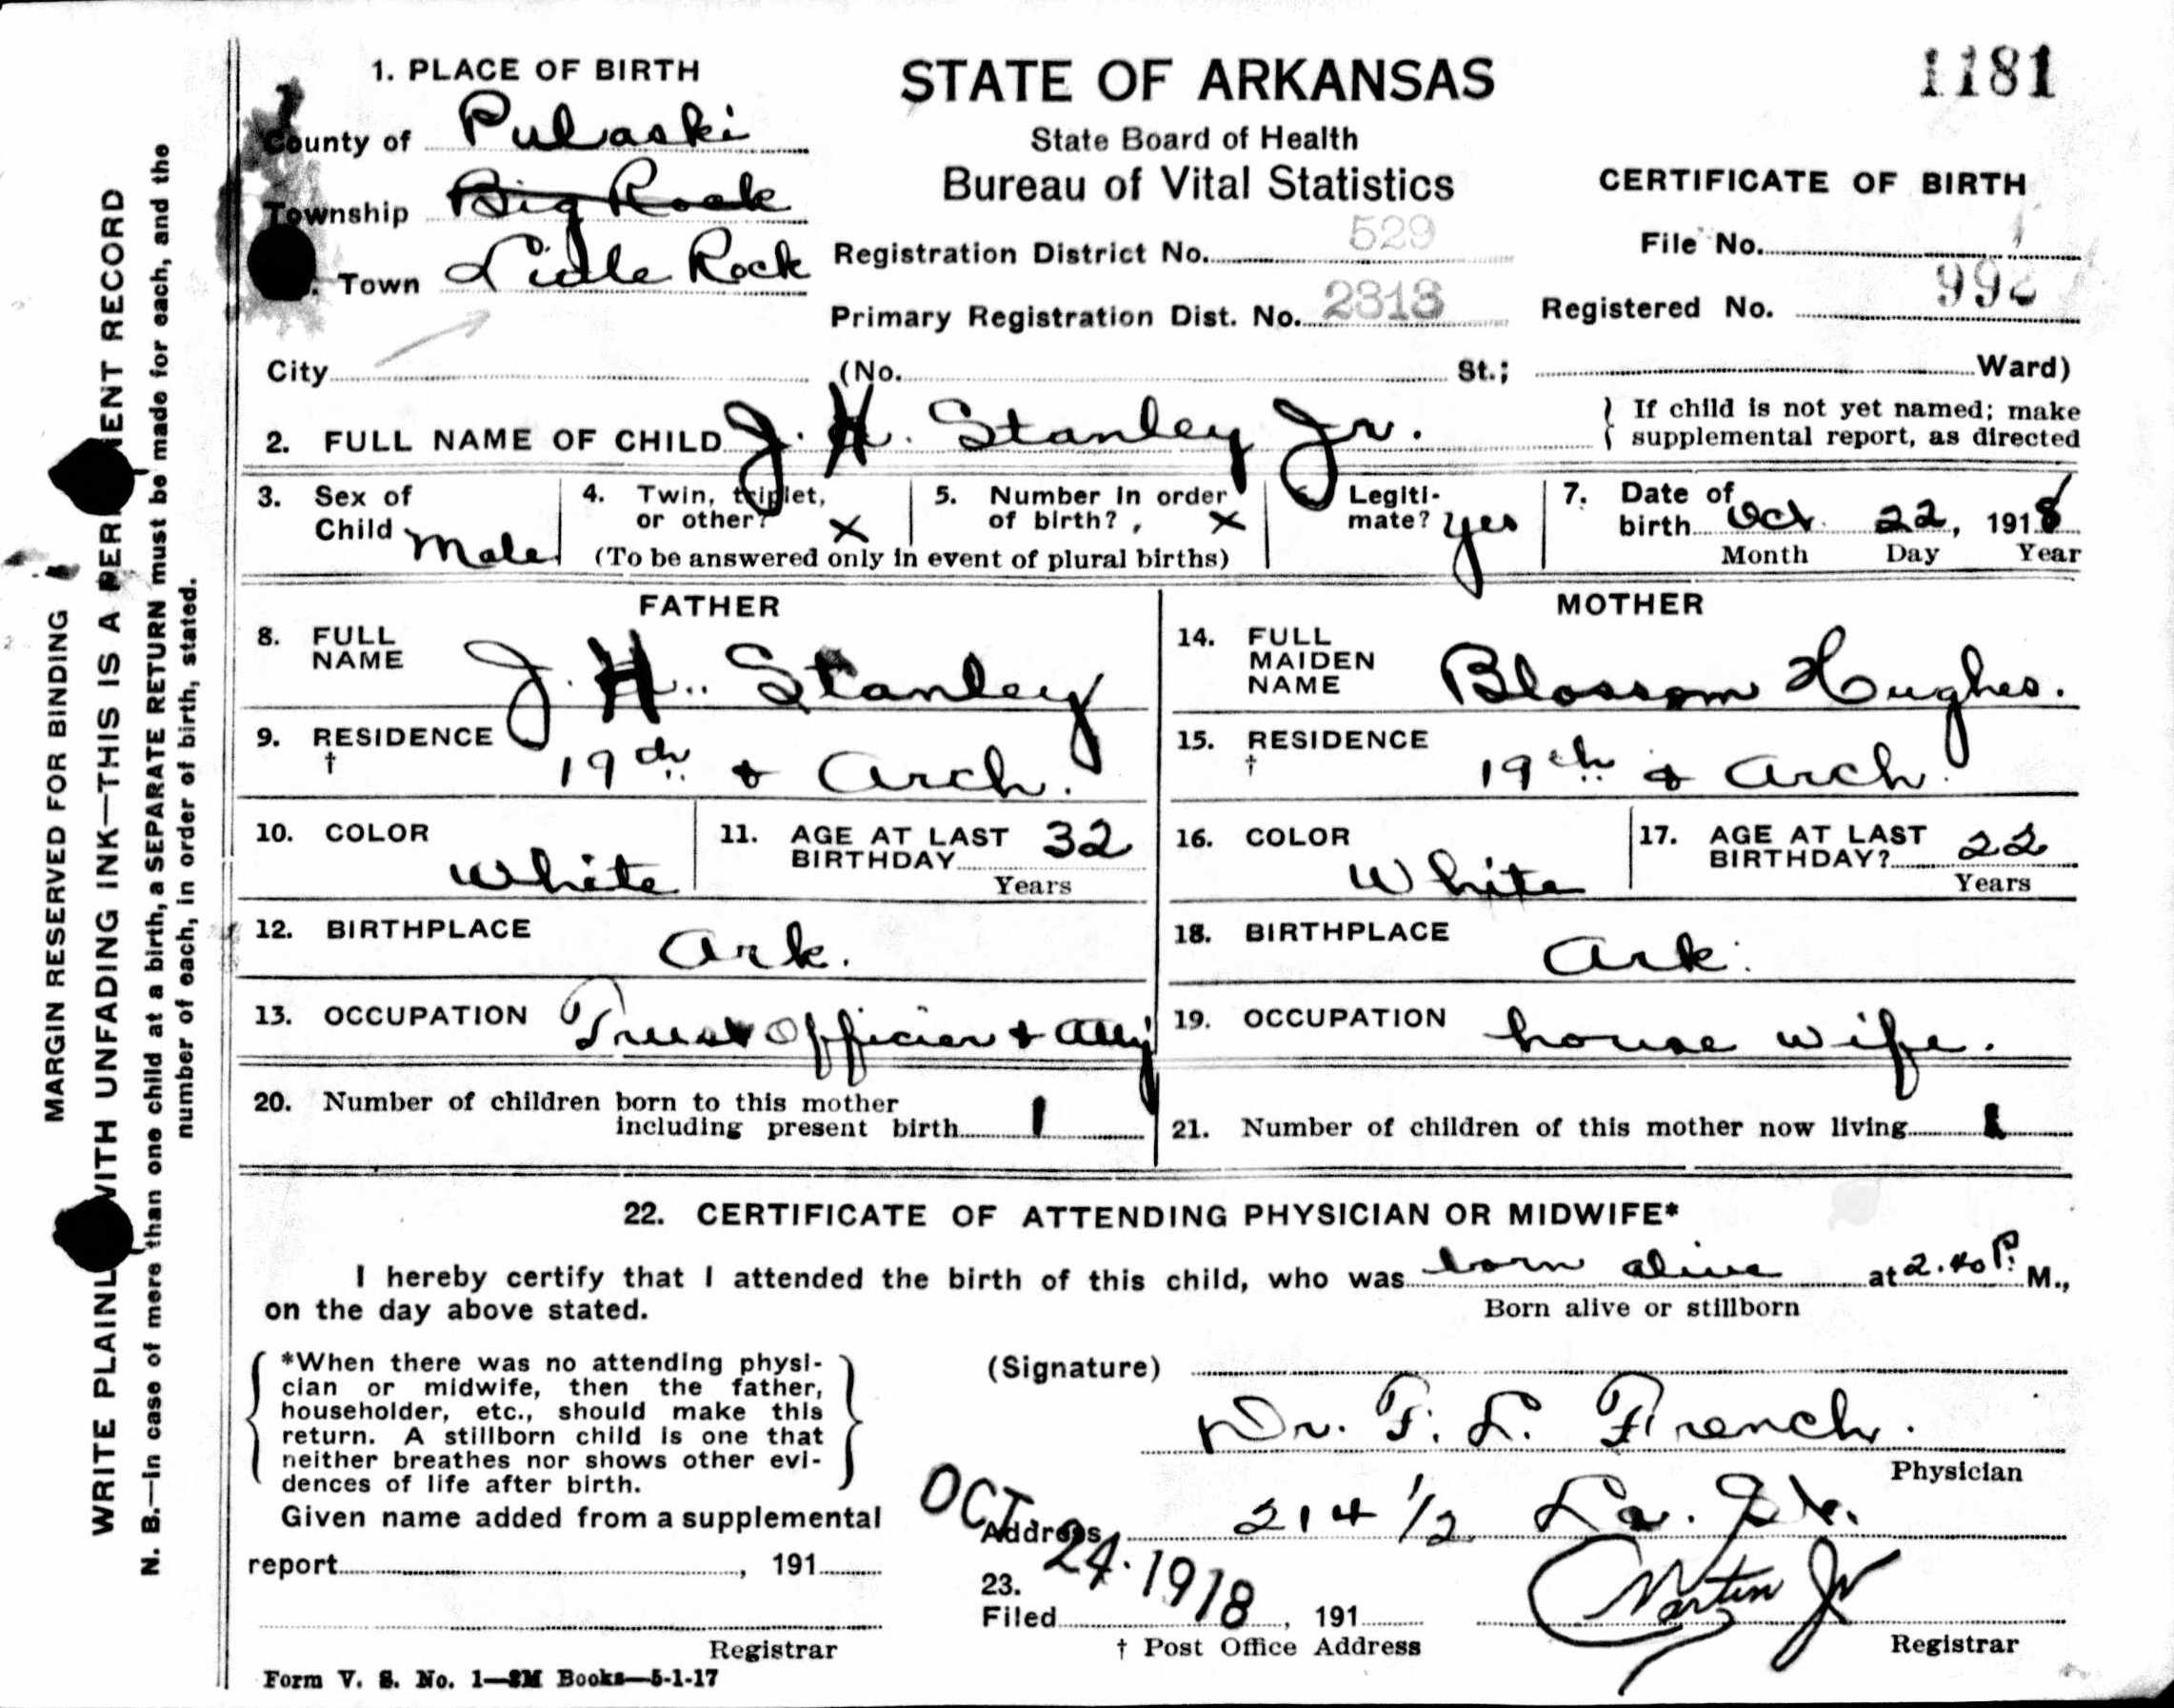 1181
1. PLACE OF BIRTH
STATE OF ARKANSAS
State Board of Health
Bureau of Vital Statistics
CERTIFICATE OF BIRTH
County of Pulaski
Township Big Rock
Town Little Rock
Registration District No. 529
File No.
Primary Registration Dist. No. 2313
Registered No.
City (No. St.; Ward)
2. FULL NAME OF CHILD J. H. Stanley Jr.
If child is not yet named; make
supplemental report, as directed
3. Sex of Child Male
4. Twin, triplet, or other? X
5. Number in order of birth? X
(To be answered only in event of plural births)
Legiti-mate? yes
7. Date of birth Oct. 22, 1918
Month Day Year
FATHER
8. FULL NAME J. H. Stanley
9. RESIDENCE † 19th & Arch.
10. COLOR White
11. AGE AT LAST BIRTHDAY 32 Years
12. BIRTHPLACE Ark.
13. OCCUPATION Trust Officer & Atty
MOTHER
14. FULL MAIDEN NAME Blossom Hughes.
15. RESIDENCE † 19th & Arch.
16. COLOR White
17. AGE AT LAST BIRTHDAY? 22 Years
18. BIRTHPLACE Ark.
19. OCCUPATION house wife.
20. Number of children born to this mother
including present birth 1
21. Number of children of this mother now living 1
22. CERTIFICATE OF ATTENDING PHYSICIAN OR MIDWIFE*
I hereby certify that I attended the birth of this child, who was born alive at 2.40 P. M.,
on the day above stated.
Born alive or stillborn
*When there was no attending physi-
cian or midwife, then the father,
householder, etc., should make this
return. A stillborn child is one that
neither breathes nor shows other evi-
dences of life after birth.
Given name added from a supplemental
report, 191
Registrar
(Signature)
Dr. F. L. French.
Physician
Address 214 1/2 La. St.
OCT 24. 1918
23.
Filed, 191
Martin Jr
Registrar
† Post Office Address
Form V. S. No. 1—8M Books—5-1-17
MARGIN RESERVED FOR BINDING
WRITE PLAINLY WITH UNFADING INK—THIS IS A PERMANENT RECORD
N. B.—In case of more than one child at a birth, a SEPARATE RETURN must be made for each, and the
number of each, in order of birth, stated.